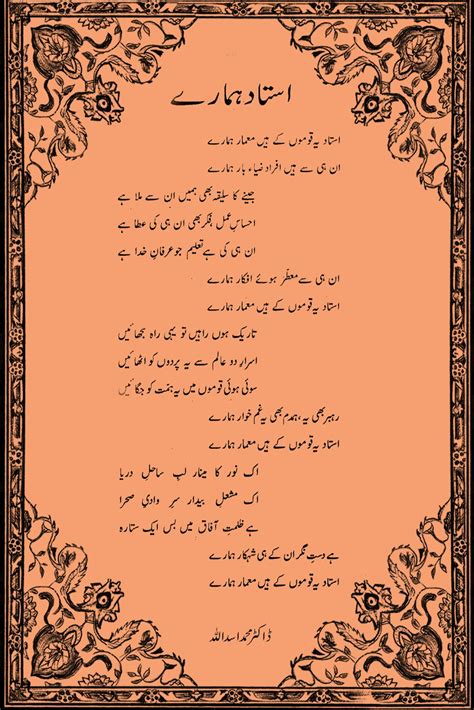 استاد ہمارے
استاد یہ قوموں کے ہیں معمار ہمارے
ان ہی سے ہیں افراد ضیاء بار ہمارے
جینے کا سلیقہ بھی ہمیں ان سے ملا ہے
احساسِ عمل، فکر بھی ان ہی کی عطا ہے
ان ہی کی ہے تعلیم جو عرفانِ خدا ہے
ان ہی سے معطّر ہوئے افکار ہمارے
استاد یہ قوموں کے ہیں معمار ہمارے
تاریک ہوں راہیں تو یہی راہ سجھائیں
اسرارِ دو عالم سے یہ پردوں کو اٹھائیں
سوئی ہوئی قوموں میں یہ ہمت کو جگائیں
رہبر بھی یہ، ہمدم بھی یہ غم خوار ہمارے
استاد یہ قوموں کے ہیں معمار ہمارے
اک نور کا مینار لبِ ساحلِ دریا
اک مشعلِ بیدار سرِ وادیِ صحرا
ہے ظلمتِ آفاق میں بس ایک ستارہ
ہے دستِ نگراں کے ہی شہکار ہمارے
استاد یہ قوموں کے ہیں معمار ہمارے
ڈاکٹر محمد اسد اللہ